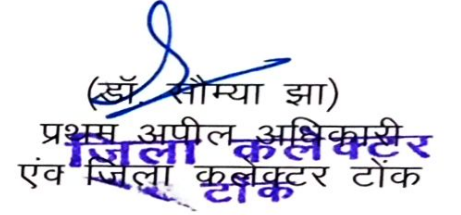 (डॉ. सौम्या झा)
प्रथम अपील अधिकारी
जिला कलेक्टर
एंव जिला कलेक्टर टोंक
टोंक